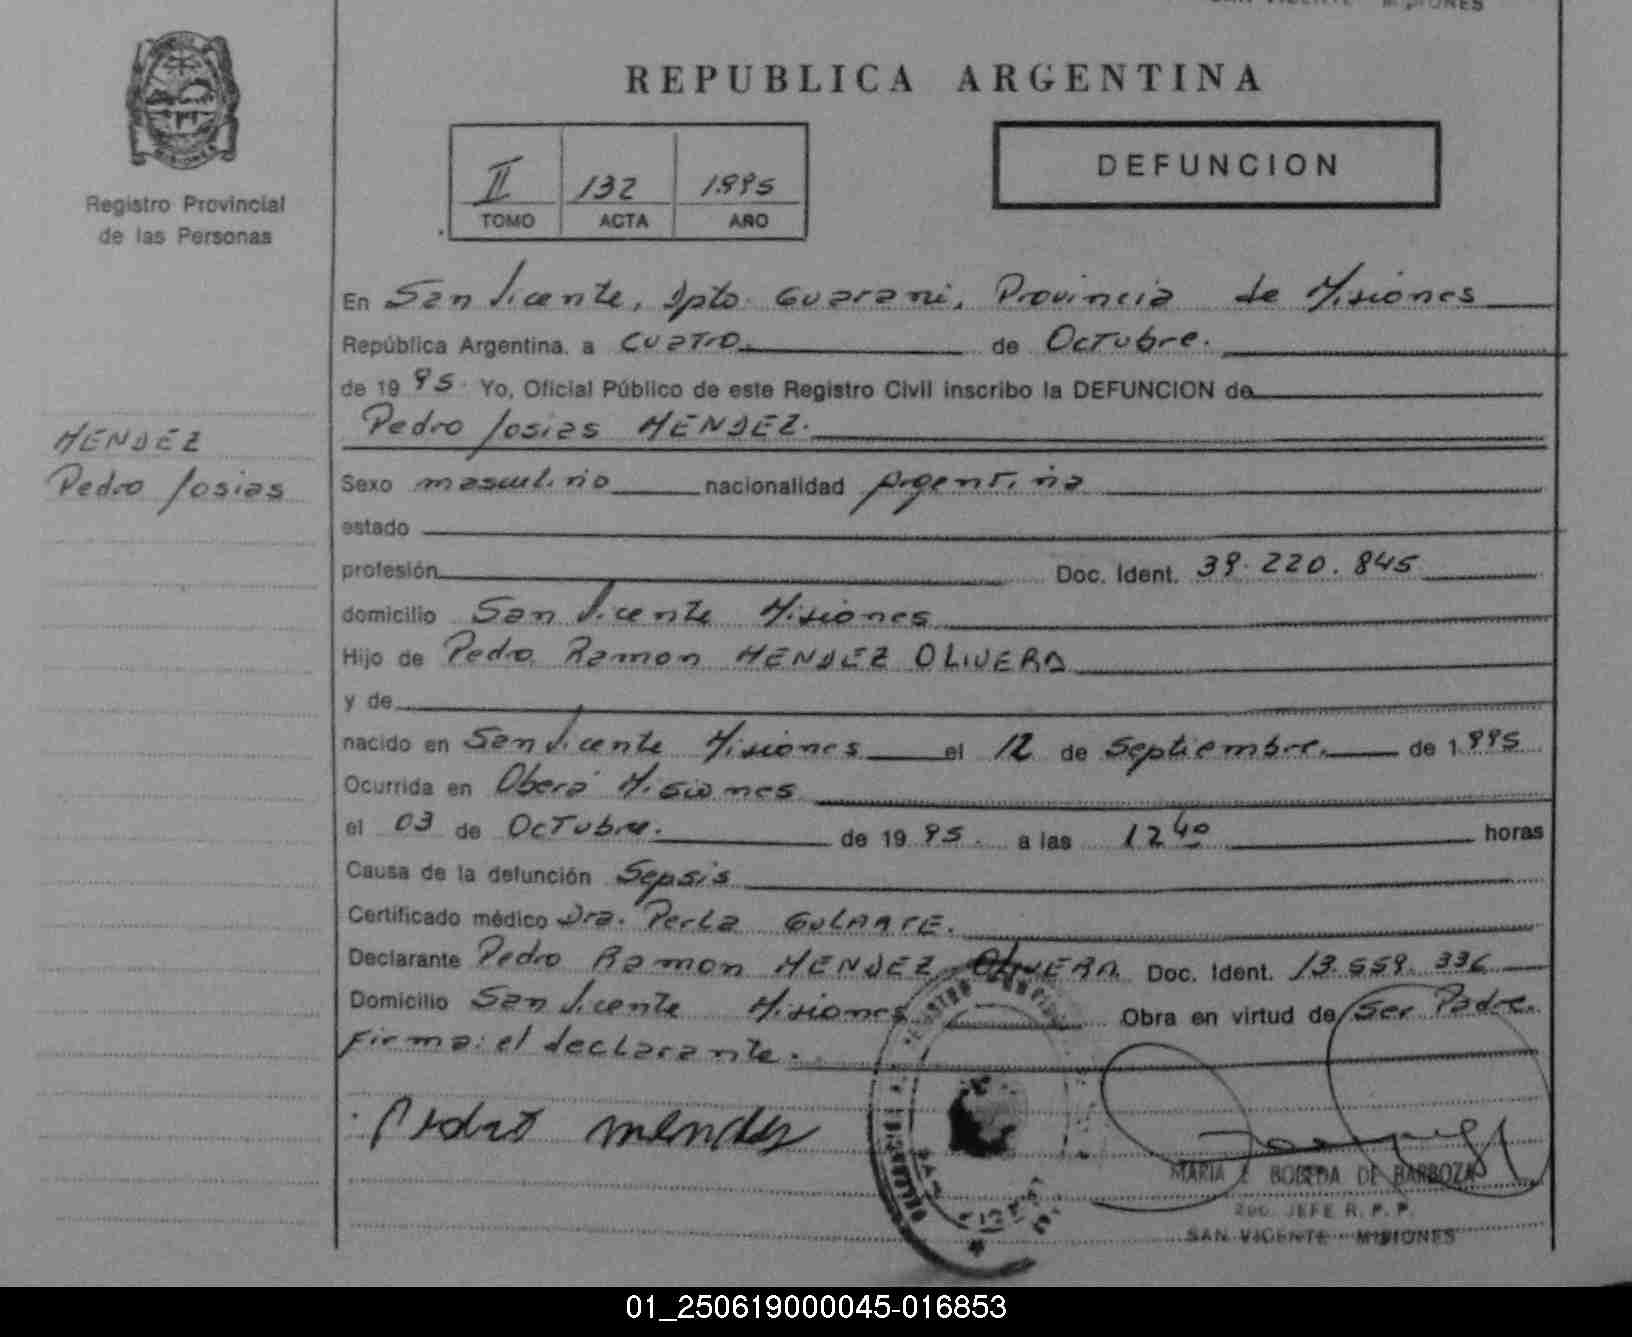 MISIONES
Registro Provincial
de las Personas
REPUBLICA ARGENTINA
II 132 1995
TOMO ACTA AÑO
DEFUNCION
En San Vicente, Dpto. Guarani, Provincia de Misiones
República Argentina, a cuatro de Octubre.
de 1995. Yo, Oficial Público de este Registro Civil inscribo la DEFUNCION de
Pedro Josias MENDEZ.
MENDEZ
Pedro Josias
Sexo masculino nacionalidad Argentina
estado
profesión Doc. Ident. 39.220.845
domicilio San Vicente Misiones
Hijo de Pedro Ramon MENDEZ OLIVERA
y de
nacido en San Vicente Misiones el 12 de Septiembre. de 1.995
Ocurrida en Oberá Misiones
el 03 de Octubre. de 1995. a las 12 40 horas
Causa de la defunción Sepsis
Certificado médico Dra. Perla GULARTE.
Declarante Pedro Ramon MENDEZ OLIVERA Doc. Ident. 13.559.336
Domicilio San Vicente Misiones Obra en virtud de Ser Padre.
Firma: el declarante.
Pedro mendez
MARIA E BOBEDA DE BARBOZA
2DO. JEFE R. P. P.
SAN VICENTE - MISIONES
01_250619000045-016853